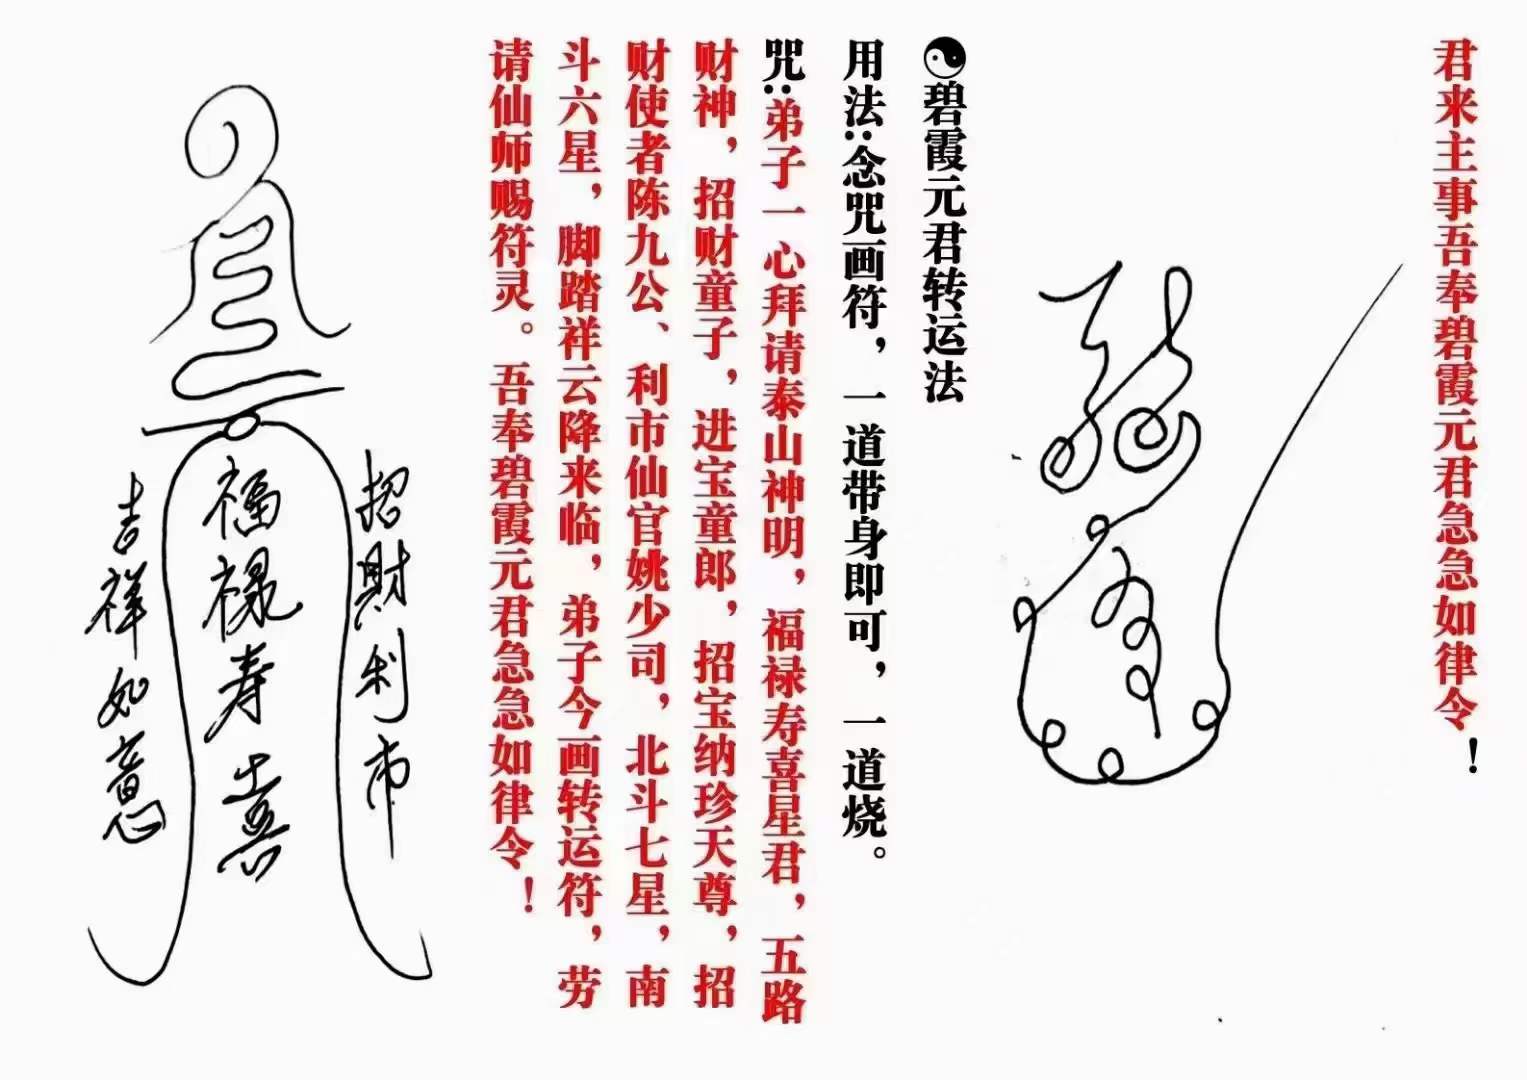 君来主事吾奉碧霞元君急急如律令！
碧霞元君转运法
用法：念咒画符，一道带身即可，一道烧。
咒：弟子一心拜请泰山神明，福禄寿喜星君，五路
财神，招财童子，进宝童郎，招宝纳珍天尊，招
财使者陈九公、利市仙官姚少司，北斗七星，南
斗六星，脚踏祥云降来临，弟子今画转运符，劳
请仙师赐符灵。吾奉碧霞元君急急如律令！
招財利市
福禄寿喜
吉祥如意